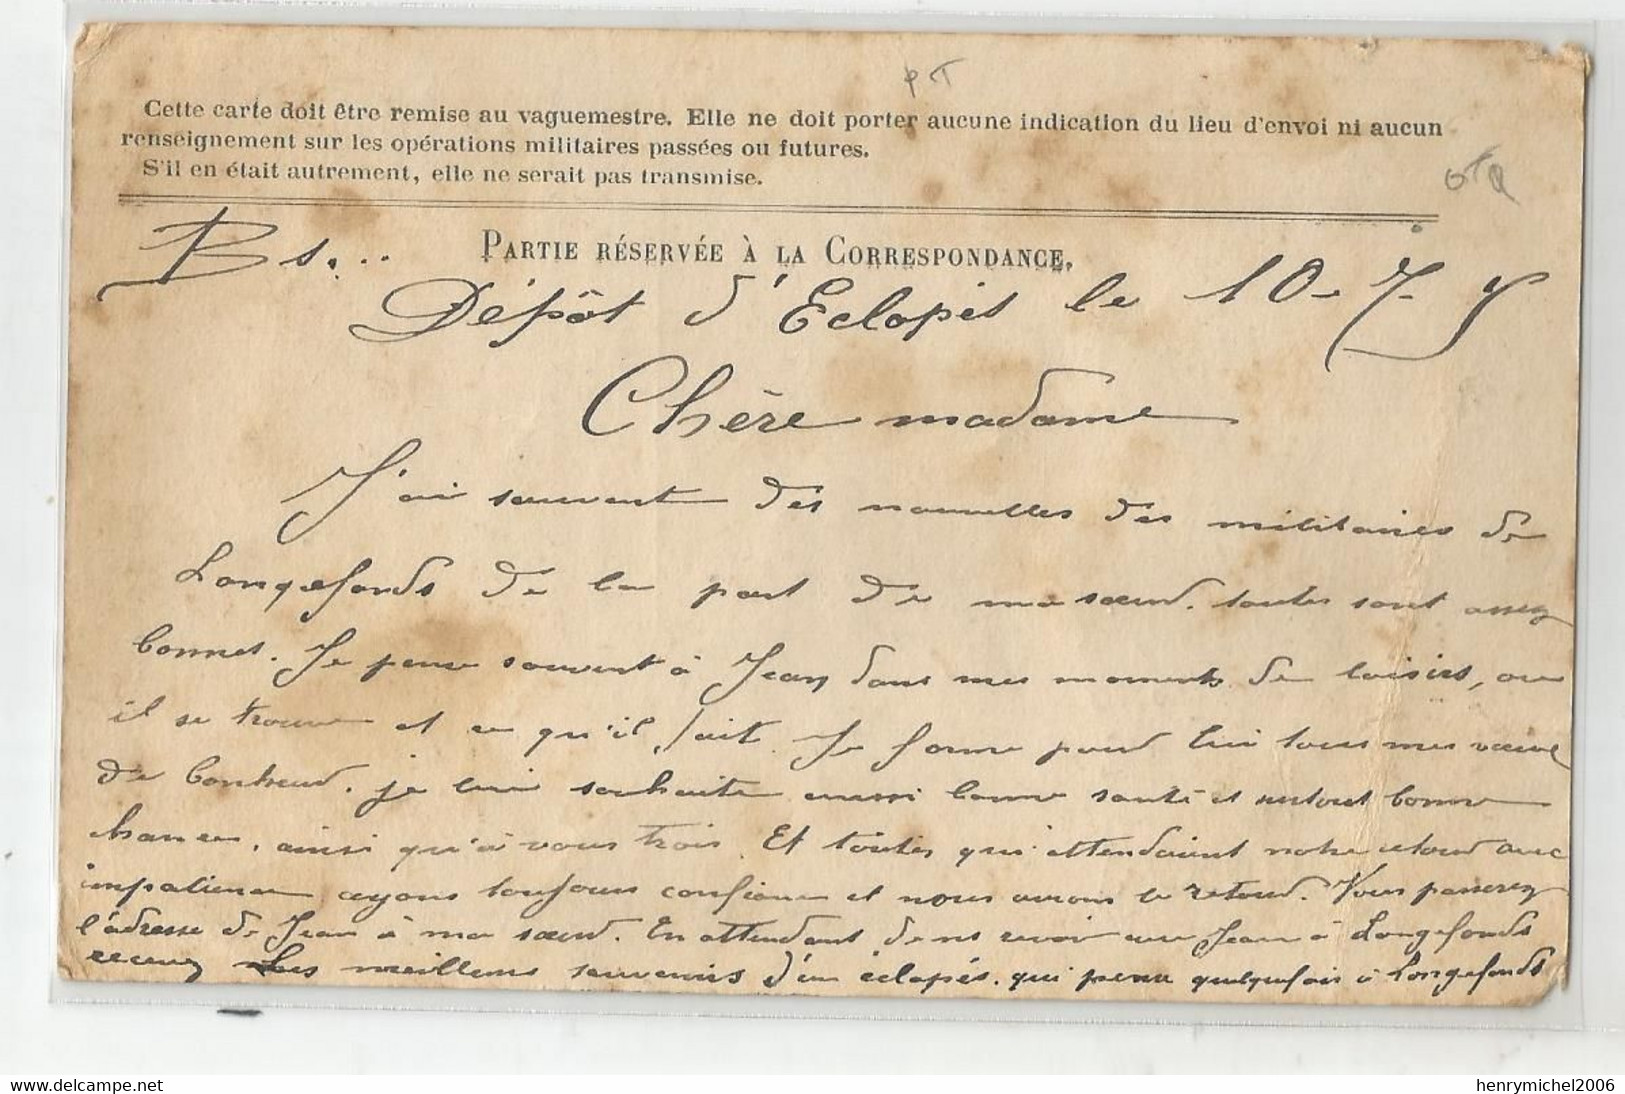 Cette carte doit être remise au vaguemestre. Elle ne doit porter aucune indication du lieu d'envoi ni aucun
renseignement sur les opérations militaires passées ou futures.
S'il en était autrement, elle ne serait pas transmise.
PARTIE RÉSERVÉE À LA CORRESPONDANCE.
Bs...
Dépôt d'Eclopés le 10-7-
Chère madame
J'ai souvent des nouvelles des militaires de
Longefonds de la part de ma sœur. toutes sont assez
bonnes. Je pense souvent à Jean dans mes moments de loisirs, ou
il se trouve et ce qu'il fait. Je forme pour lui tous mes vœux
de bonheur. je lui souhaite aussi bonne santé et surtout bonne
chance, ainsi qu'à vous trois. Et toutes qui attendaient notre retour avec
impatience ayons toujours confiance et nous aurons le retour. Vous passerez
l'adresse de Jean à ma sœur. En attendant de se revoir avec Jean à Longefonds
recevez Les meilleurs souvenirs d'un éclopés. qui pense quelquefois à Longefonds
henrymichel2006